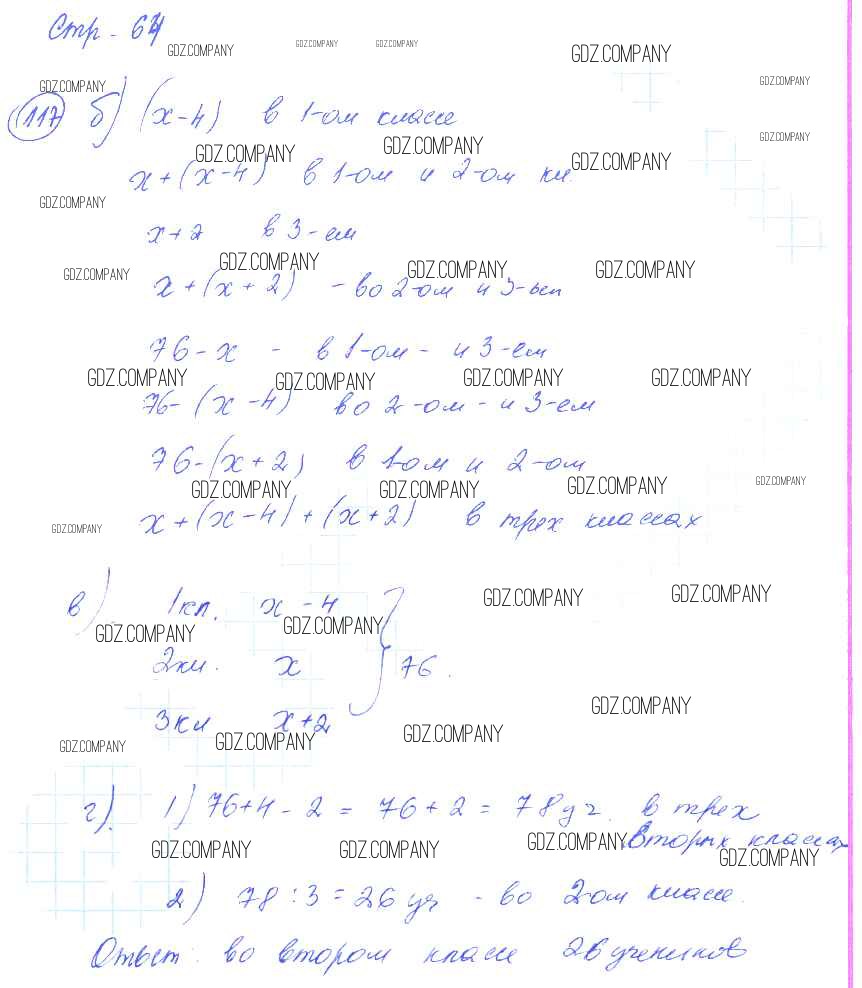 Стр - 64
GDZ.COMPANY GDZ.COMPANY GDZ.COMPANY GDZ.COMPANY
GDZ.COMPANY GDZ.COMPANY
(117) б) (x-4) в 1-ом классе
GDZ.COMPANY GDZ.COMPANY GDZ.COMPANY GDZ.COMPANY
x+(x-4) в 1-ом и 2-ом кл.
GDZ.COMPANY
x+2 в 3-ем
GDZ.COMPANY GDZ.COMPANY GDZ.COMPANY GDZ.COMPANY
x+(x+2) - во 2-ом и 3-ем
76-x - в 1-ом - и 3-ем
GDZ.COMPANY GDZ.COMPANY GDZ.COMPANY GDZ.COMPANY
76-(x-4) во 2-ом - и 3-ем
76-(x+2) в 1-ом и 2-ом
GDZ.COMPANY GDZ.COMPANY GDZ.COMPANY GDZ.COMPANY
x+(x-4)+(x+2) в трех классах
GDZ.COMPANY
в) 1кл. x-4
GDZ.COMPANY GDZ.COMPANY
GDZ.COMPANY GDZ.COMPANY
2кл. x } 76.
GDZ.COMPANY
3кл x+2
GDZ.COMPANY GDZ.COMPANY GDZ.COMPANY
г). 1) 76+4-2 = 76+2 = 78уч. в трех
вторых классах
GDZ.COMPANY GDZ.COMPANY GDZ.COMPANY GDZ.COMPANY
2) 78:3=26 уч - во 2-ом классе.
Ответ: во втором классе 26 учеников